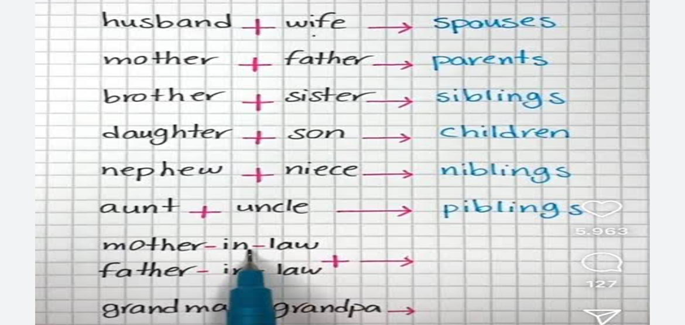 husband + wife → spouses
mother + father → parents
brother + sister → siblings
daughter + son → children
nephew + niece → niblings
aunt + uncle → piblings
5,963
mother-in-law
father- in- law + →
127
grandma grandpa →